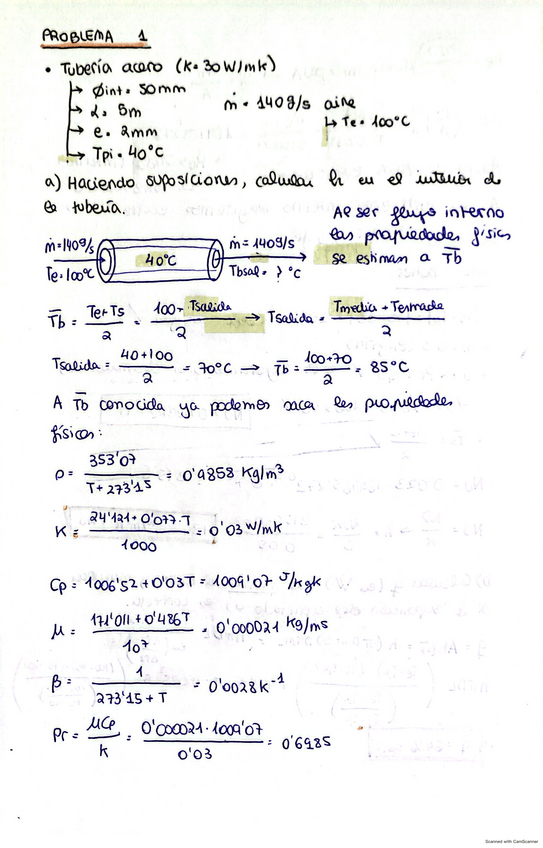 PROBLEMA 1
• Tubería acero (K=30W/mk)
↳ Øint = 50mm
ṁ = 140g/s aire
↳ L = 5m
↳ Te = 100°C
↳ e = 2mm
↳ Tpi = 40°C
a) Haciendo suposiciones, calcular h en el interior de
la tubería.
Al ser flujo interno
las propiedades físics
se estiman a T̄b
ṁ=140g/s
ṁ = 140g/s
40°C
Te=100°C
Tbsal = ? °C
T̄b = (Te+Ts)/2 = (100+Tsalida)/2 → Tsalida = (Tmedia + Tentrada)/2
Tsalida = (40+100)/2 = 70°C → T̄b = (100+70)/2 = 85°C
A T̄b conocida ya podemos sacar las propiedades
físicas:
ρ = 353'07/(T+273'15) = 0'9858 Kg/m³
K = (24'121+0'077·T)/1000 = 0'03 W/mk
Cp = 1006'52+0'03T = 1009'07 J/kgk
μ = (171'011+0'486T)/10⁷ = 0'000021 Kg/ms
β = 1/(273'15+T) = 0'0028k⁻¹
Pr = μCp/K = (0'000021·1009'07)/0'03 = 0'6985
Scanned with CamScanner